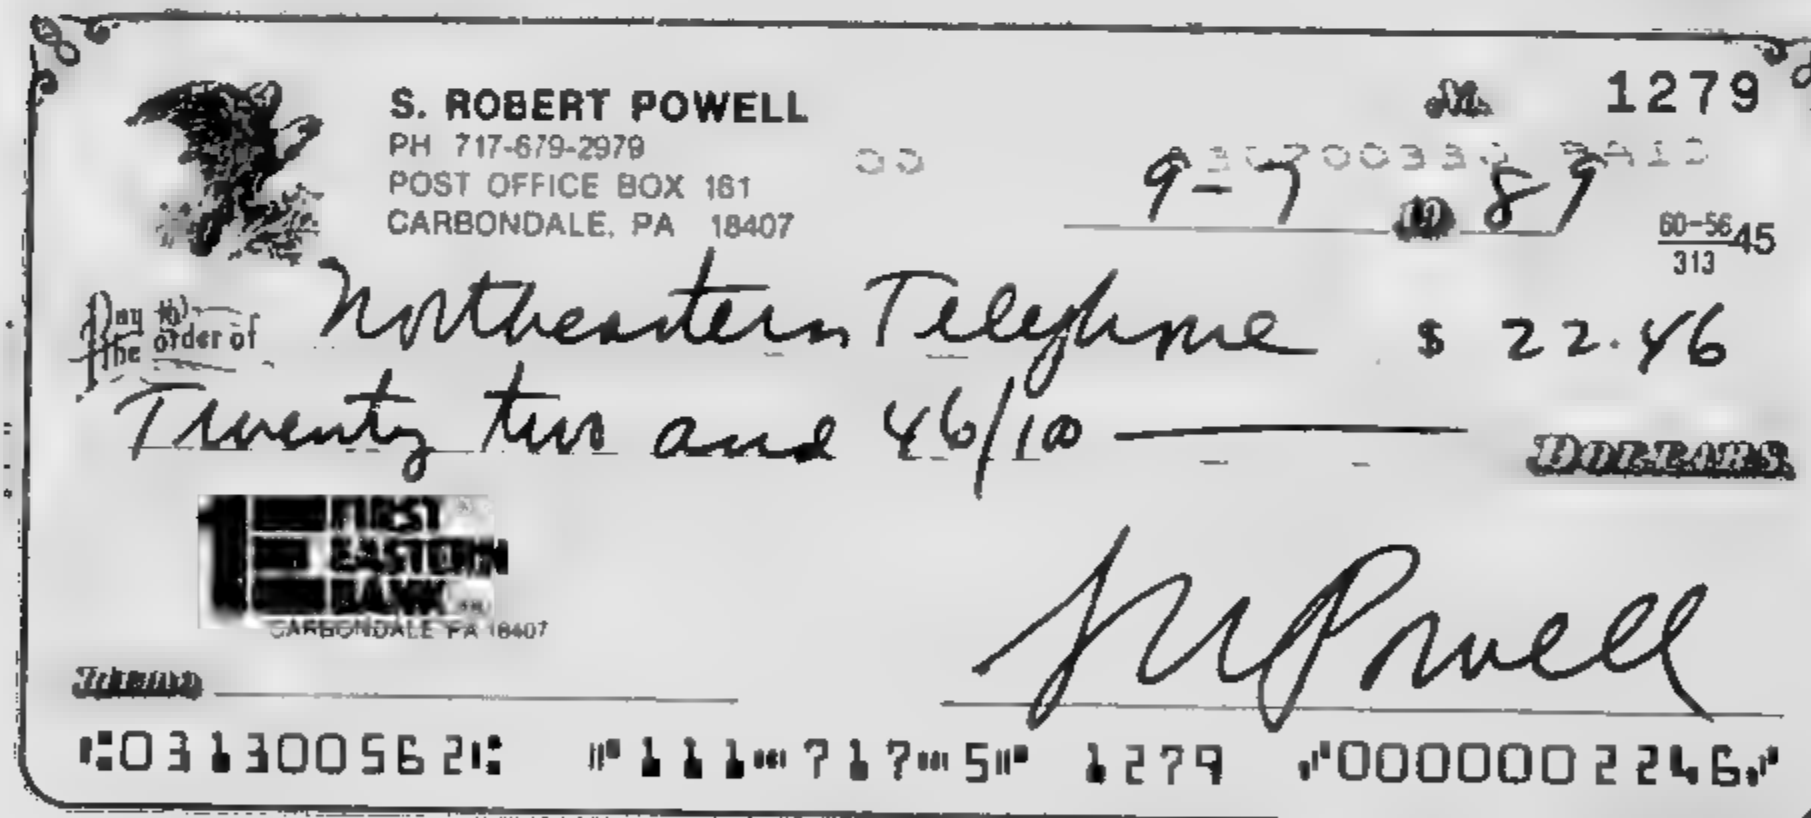 S. ROBERT POWELL
PH 717-679-2979
POST OFFICE BOX 161
CARBONDALE, PA 18407
No. 1279
9-7 19 89
60-56 45
313
Pay to the order of Northeastern Telephone $ 22.46
Twenty two and 46/100 DOLLARS
FIRST
EASTERN
BANK
CARBONDALE PA 18407
S R Powell
⑆031300562⑆ ⑈111⑉717⑉5⑈ 1279 ⑈0000002246⑈